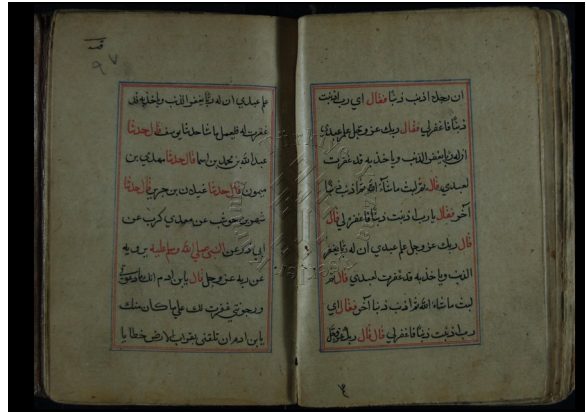 ان رجلا اذنب ذنبا فقال اي رب اذنبت
ذنبا فاغفر لي فقال ربك عز وجل علم عبدي
ان له ربا يغفر الذنب وياخذ به قد غفرت
لعبدي قال ثم لبث ماشاء الله ثم اذنب ذنبا
آخر فقال يا رب اذنبت ذنبا فاغفر لي قال
قال ربك عز وجل علم عبدي ان له ربا يغفر
الذنب وياخذ به قد غفرت لعبدي قال ثم
لبث ماشاء الله ثم اذنب ذنبا آخر فقال اي
رب اذنبت ذنبا فاغفر لي قال قال ربك عز وجل
علم عبدي ان له ربا يغفر الذنب وياخذ به قد
غفرت له فليعمل ماشا حدثنا يوسف قال حدثنا
عبد الله بن محمد بن اسما قال حدثنا مهدي بن
ميمون قال حدثنا غيلان بن جرير قال حدثنا
شهر بن حوشب عن معدي كرب عن
ابي ذر عن النبي صلي الله وسلم عليه يرويه
عن ربه عز وجل قال يابن ادم انك ما دعوتني
ورجوتني غفرت لك علي ما كان منك
يابن ادم ان تلقني بقراب الارض خطايا